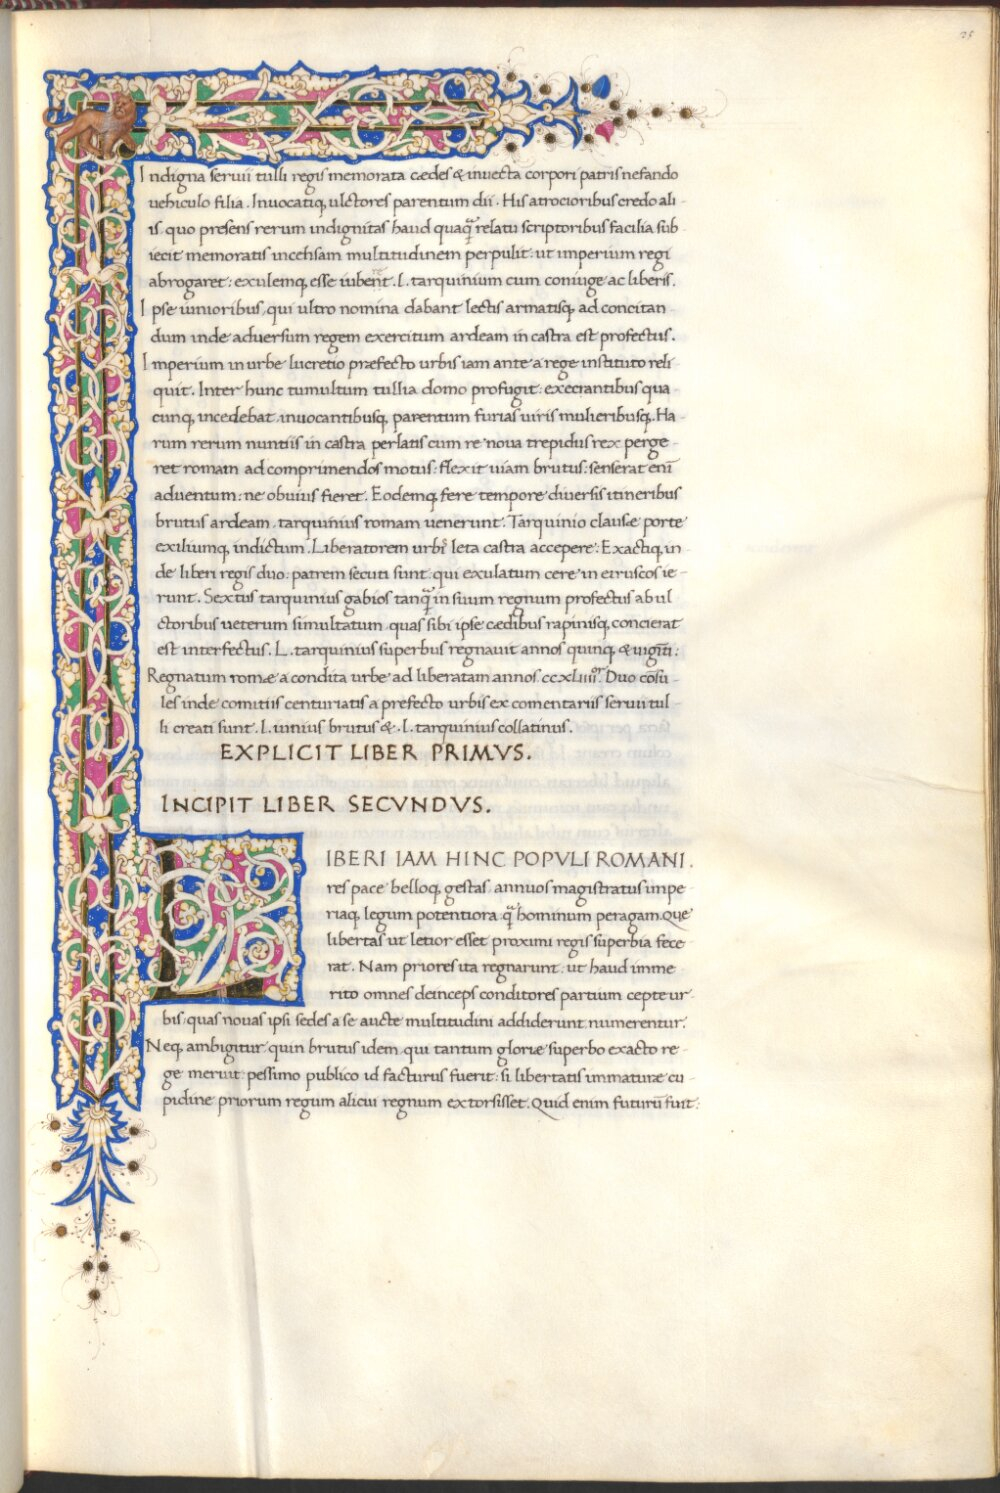 25
Indigna servii tulli regis memorata cædes & invecta corpori patris nefando
vehiculo filia. Invocatiq; ultores parentum dii. His atrocioribus credo ali-
is. quo presens rerum indignitas haud quaq̄ relatu scriptoribus facilia sub-
iecit memoratis incensam multitudinem perpulit: ut imperium regi
abrogaret: exulemq; esse iuberet. L. tarquinium cum coniuge ac liberis.
Ipse iunioribus, qui ultro nomina dabant lectis armatisq; ad concitan-
dum inde adversum regem exercitum ardeam in castra est profectus.
Imperium in urbe lucretio præfecto urbis iam ante a rege instituto reli-
quit. Inter hunc tumultum tullia domo profugit: execrantibus qua
cunq; incedebat. invocantibusq; parentum furias viris mulieribusq;. Ha-
rum rerum nuntiis in castra perlatis cum re nova trepidus rex perge-
ret romam ad comprimendos motus: flexit viam brutus: senserat eni᷈
adventum: ne obvius fieret. Eodemq; fere tempore diversis itineribus
brutus ardeam. tarquinius romam venerunt. Tarquinio clausæ porte
exiliumq; indictum. Liberatorem urbis leta castra accepere. Exactiq; in-
de liberi regis duo. patrem secuti sunt: qui exulatum cere in etruscos ie-
runt. Sextus tarquinius gabios tanq̄ in suum regnum profectus ab ul
ctoribus veterum simultatum quas sibi ipse cædibus rapinisq; concierat
est interfectus. L. tarquinius superbus regnavit annos quinq; & viginti:
Regnatum romæ a condita urbe ad liberatam annos. ccxliiii͏ͦʳ. Duo co᷈su-
les inde comitiis centuriatis a prefecto urbis ex comentariis servii tul-
li creati sunt. L. iunius brutus &. L. tarquinius collatinus.
EXPLICIT LIBER PRIMVS.
INCIPIT LIBER SECVNDVS.
LIBERI IAM HINC POPVLI ROMANI.
res pace belloq; gestas. annuos magistratus impe-
riaq; legum potentiora. q̄ hominum peragam. Que
libertas ut letior esset proximi regis superbia fece-
rat. Nam priores ita regnarunt: ut haud imme
rito omnes deinceps conditores partium cepte ur-
bis, quas novas ipsi sedes a se aucte multitudini addiderunt numerentur.
Neq; ambigitur quin brutus idem. qui tantum gloriæ superbo exacto re-
ge meruit: pessimo publico id facturus fuerit: si libertatis immaturæ cu-
pidine priorum regum alicui regnum extorsisset. Quid enim futurū fuit: